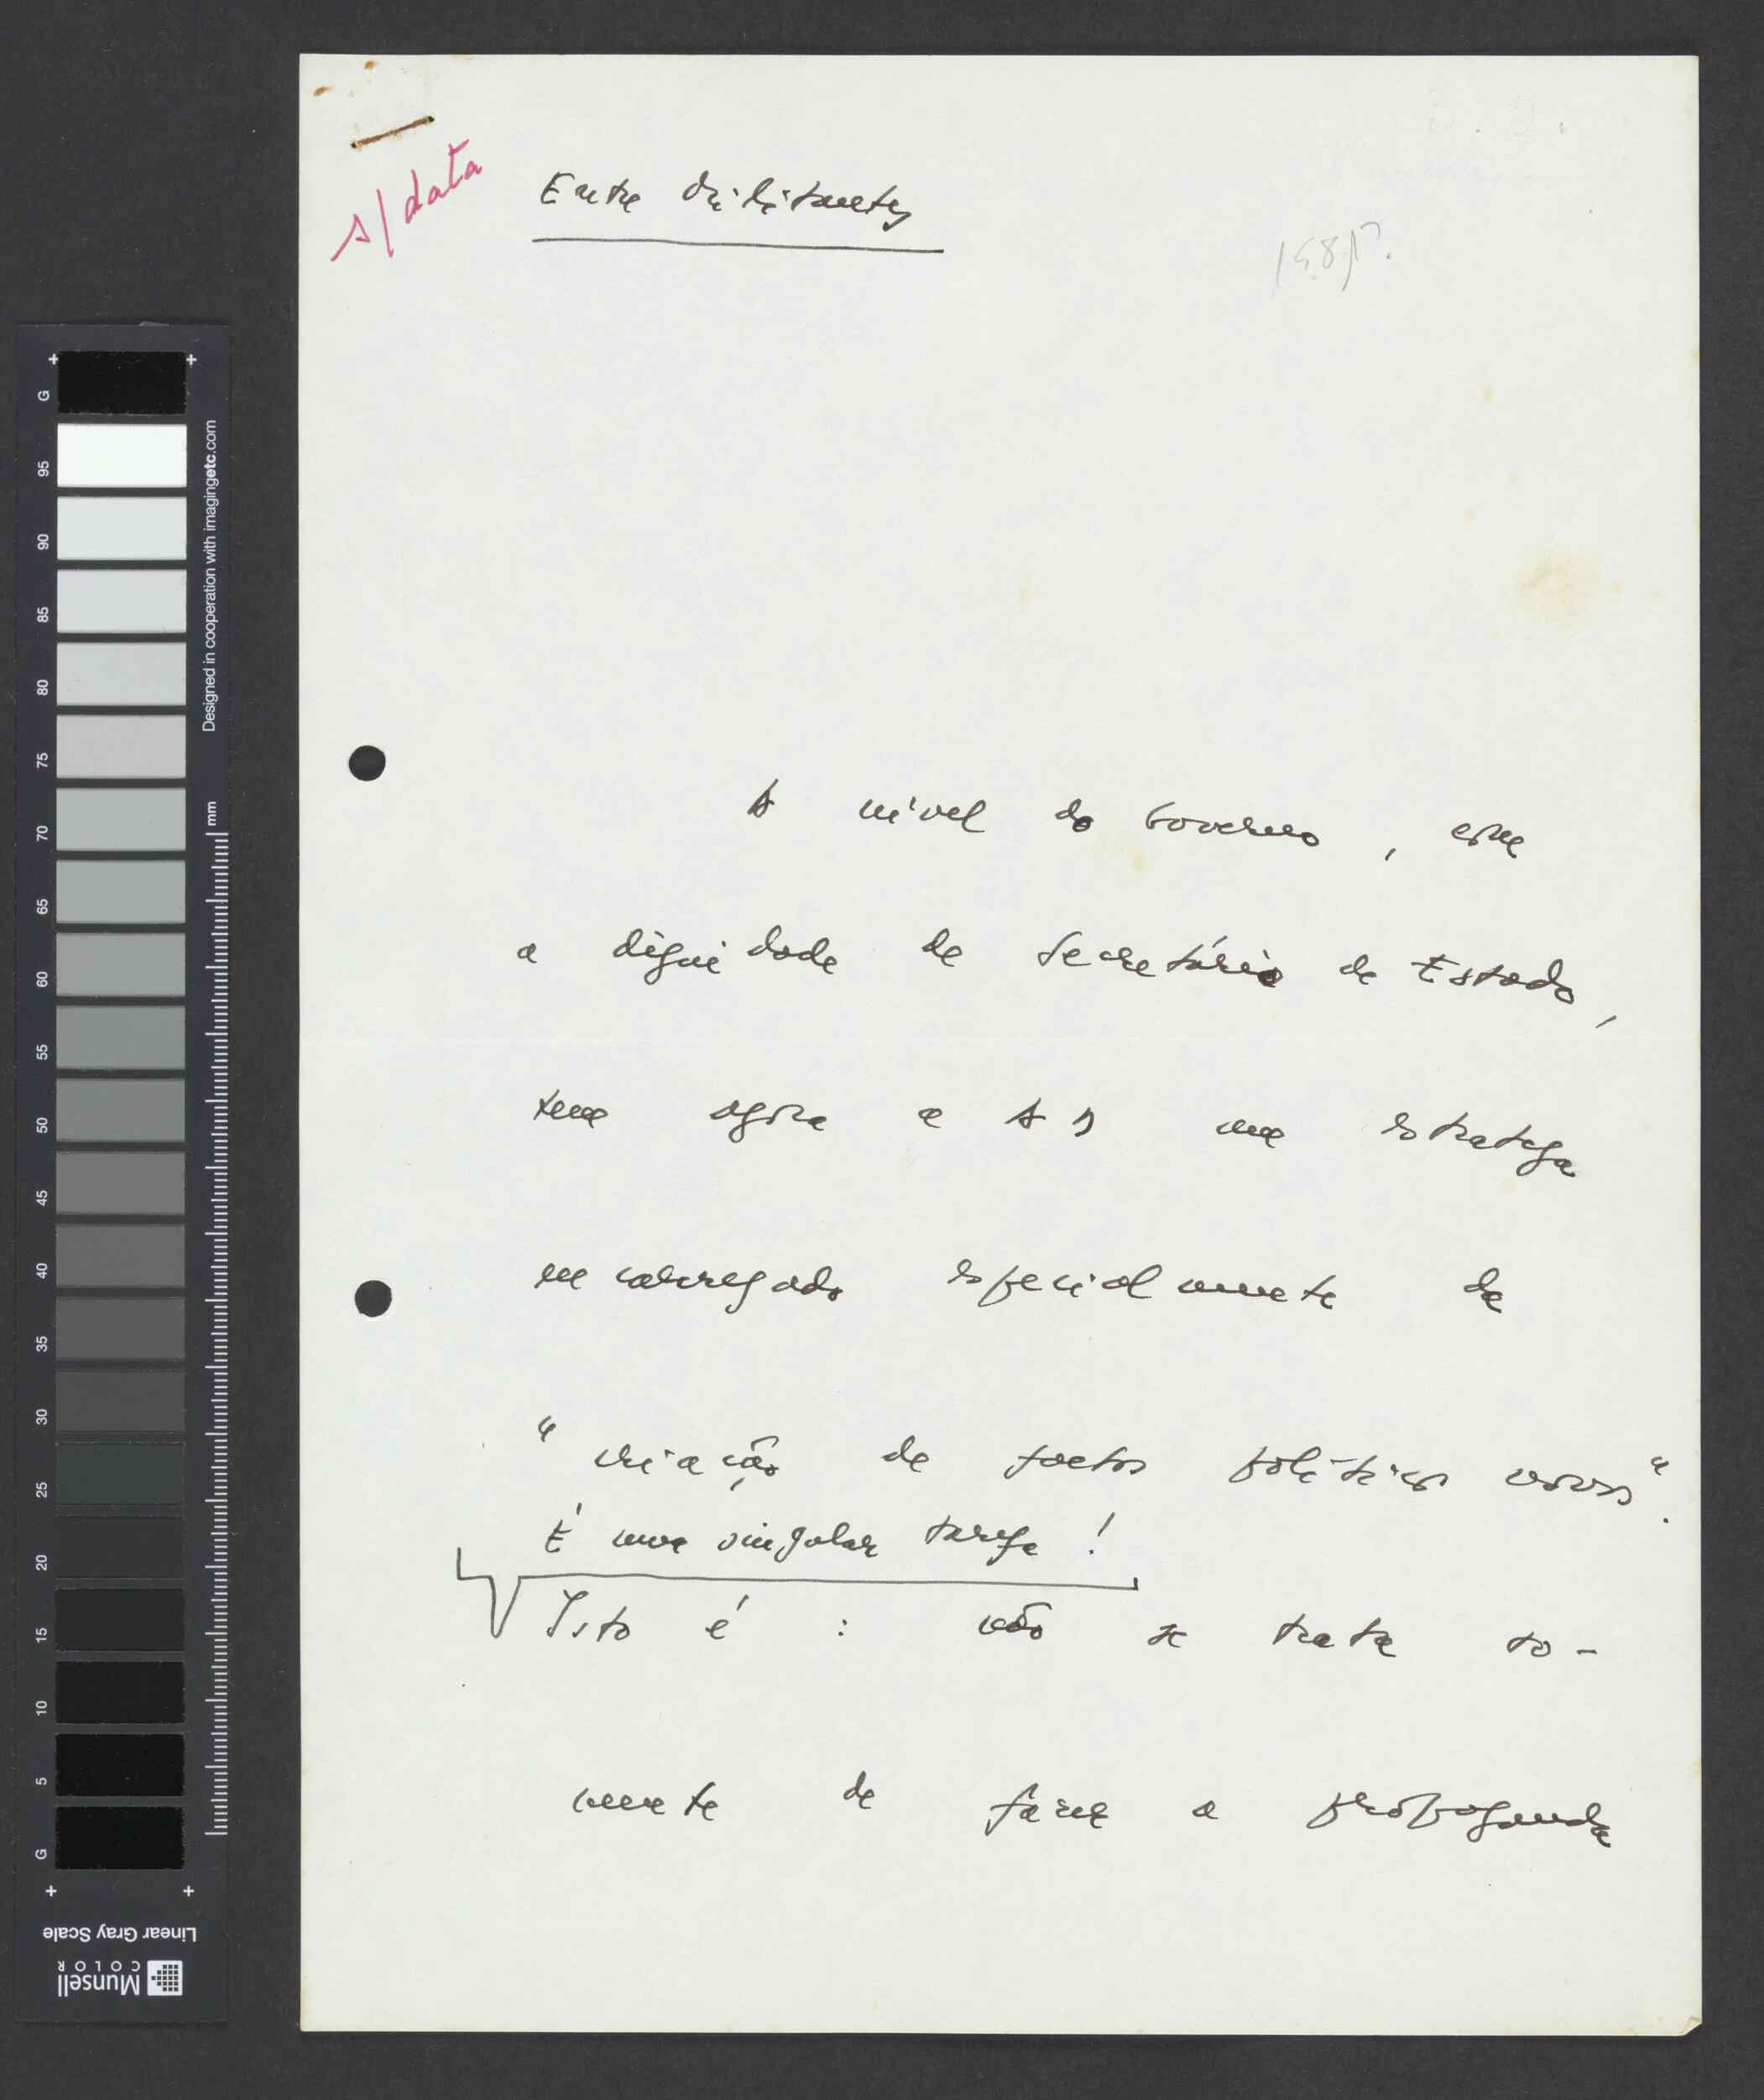 s/data
Entre Militantes
198?.
A nível do Governo, com
a dignidade de Secretário de Estado,
tem agora a AD um estratega
encarregado especialmente de
"criação de factos políticos novos".
É uma singular tarefa!
Isto é: não se trata so-
mente de fazer a propaganda
G
95
90
85
80
75
70
65
60
55
50
45
40
35
30
25
20
15
10
5
G
Designed in cooperation with imagingetc.com
mm
Linear Gray Scale
Munsell
COLOR